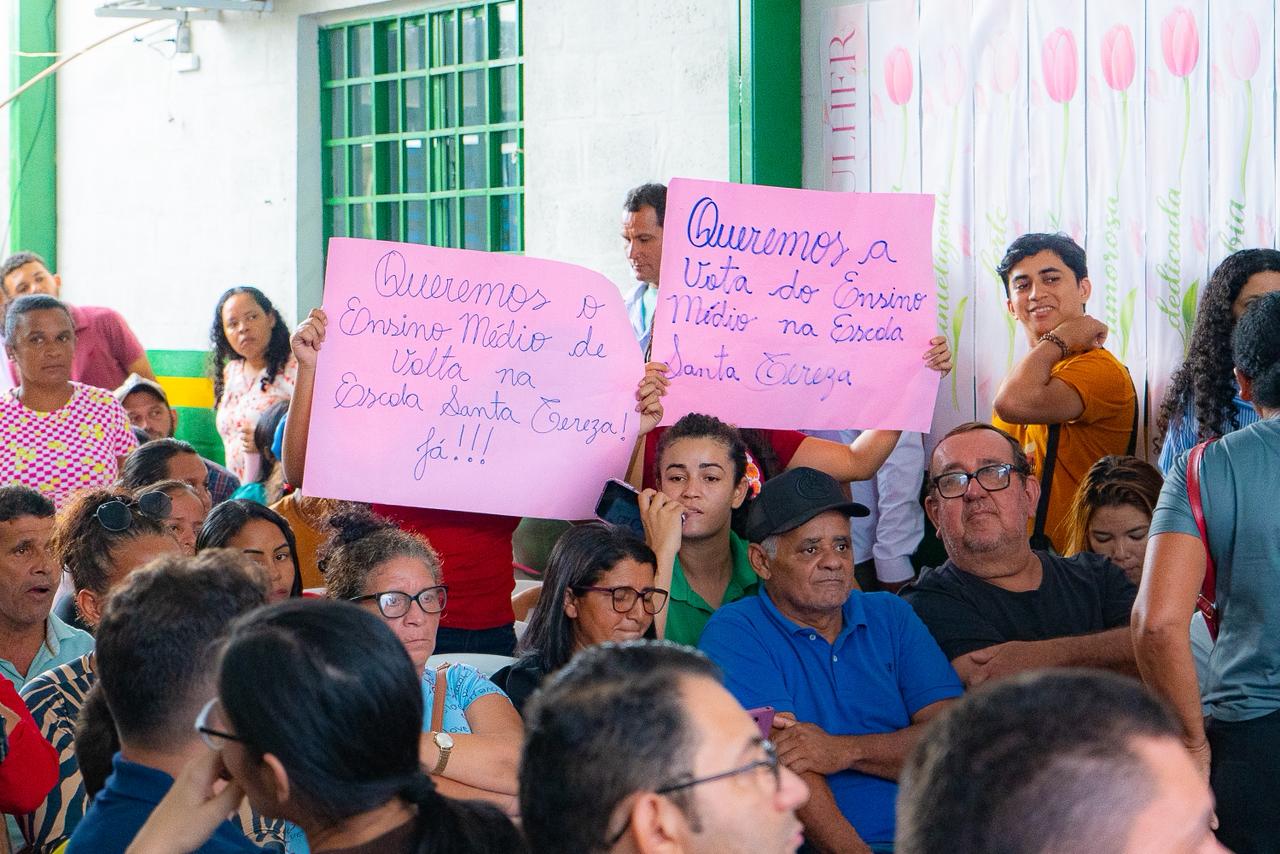 Queremos o
Ensino Médio de
Volta na
Escola Santa Tereza!
Já!!!
Queremos a
Volta do Ensino
Médio na Escola
Santa Tereza
ULHER
amorosa
dedicada